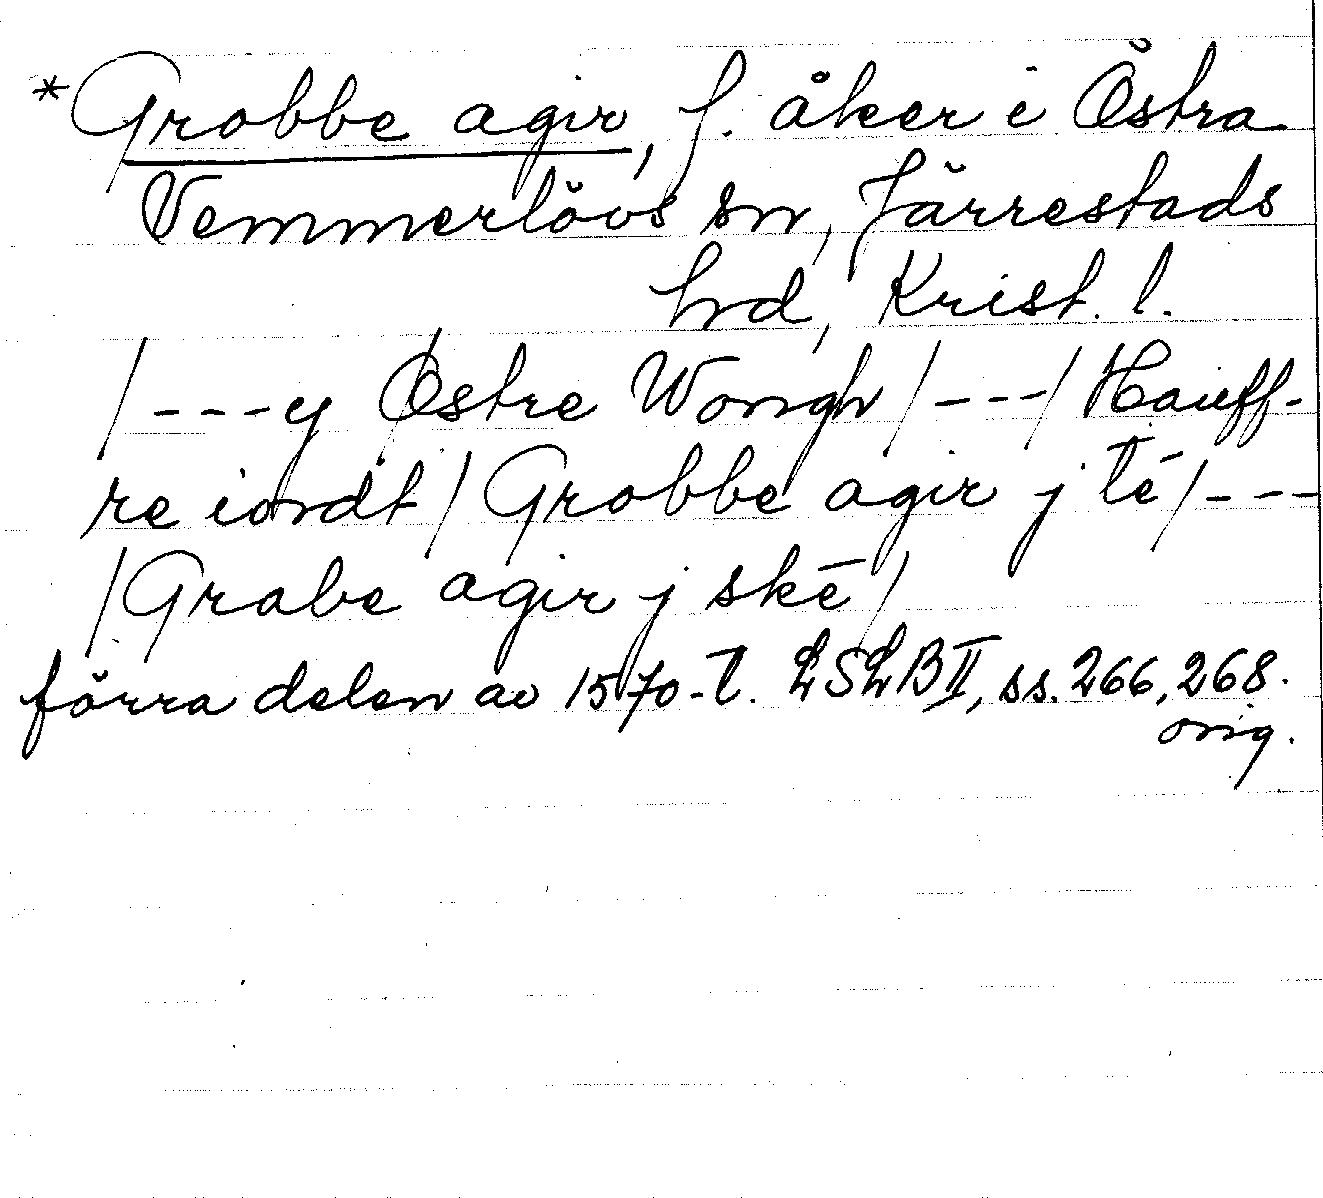 *Grobbe agir, f. åker i Östra
Vemmerlövs sn, Järrestads
hrd, Krist. l.
/---y Østre Wongh/---/Hauff-
re iordt/Grobbe agir j té/---
/Grabe agir j skē/
förra delen av 1570-t. LSLB II, ss. 266, 268.
orig.